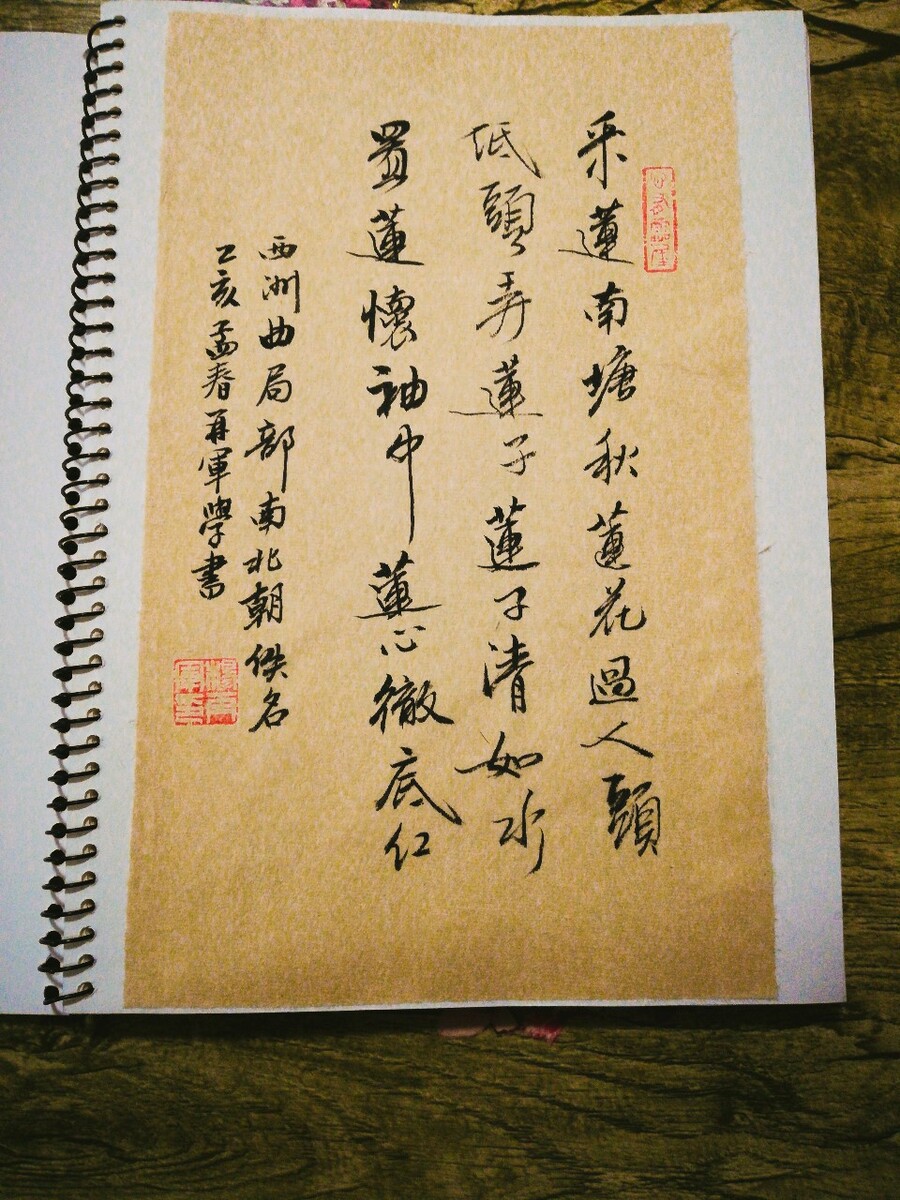 采蓮南塘秋蓮花過人頭
低頭弄蓮子蓮子清如水
置蓮懷袖中蓮心徹底仁
西洲曲局部南北朝佚名
乙亥孟春再軍學書